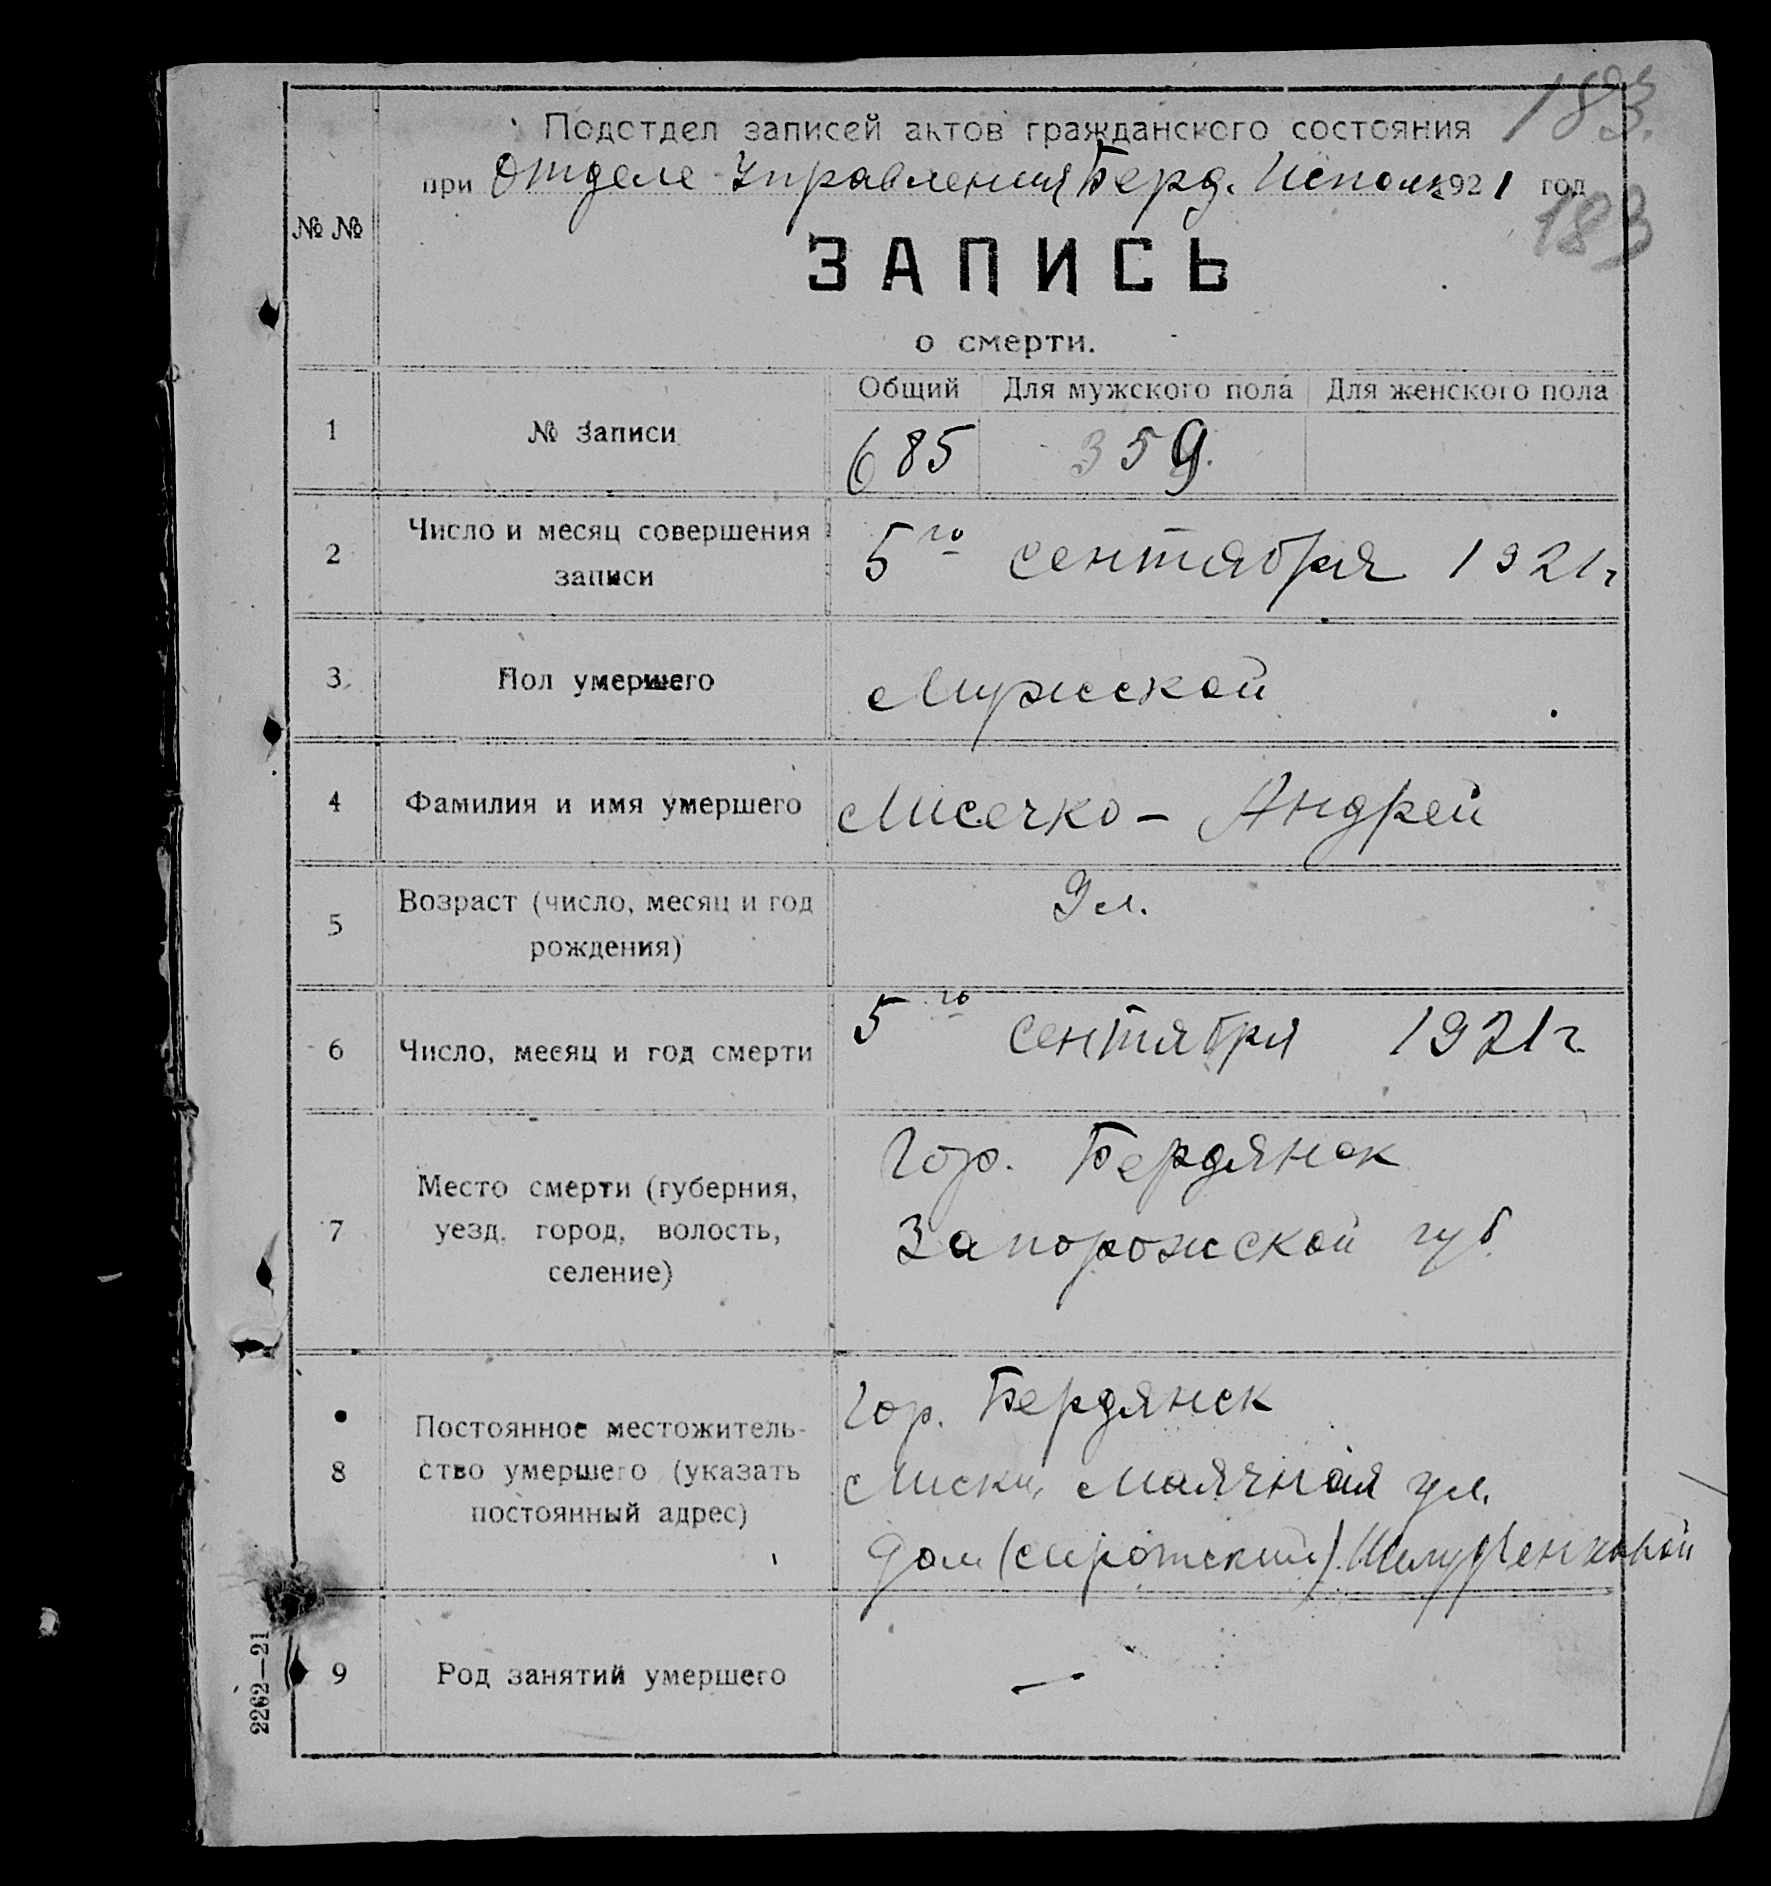 183.
Подотдел записей актов гражданского состояния
при Отделе Управления Берд. Исполк 1921 год
183
№ №
ЗАПИСЬ
о смерти.
Общий Для мужского пола Для женского пола
1 № записи 685 359.
2 Число и месяц совершения
записи
5го сентября 1921 г
3 Пол умершего Мужской
4 Фамилия и имя умершего Мисечко - Андрей
5 Возраст (число, месяц и год
рождения)
9 л.
6 Число, месяц и год смерти 5го сентября 1921 г
7 Место смерти (губерния,
уезд, город, волость,
селение)
Гор. Бердянск
Запорожской губ.
8 Постоянное местожитель-
ство умершего (указать
постоянный адрес)
Гор. Бердянск
Лиски, Маячная ул.
дом (сиротский)
9 Род занятий умершего —
2262—21